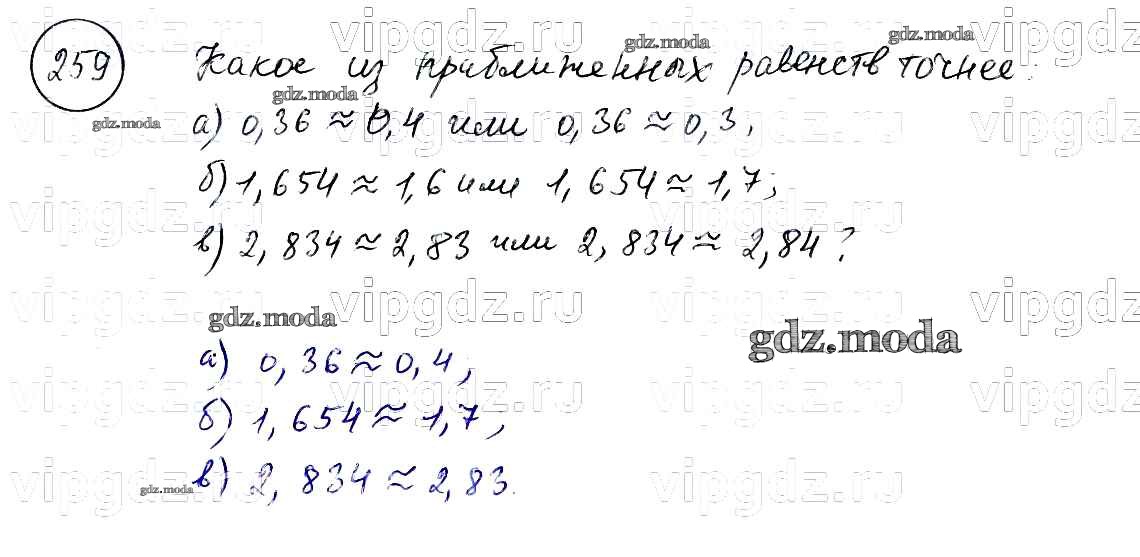 259 Какое из приближенных равенств точнее:
а) 0,36 ≈ 0,4 или 0,36 ≈ 0,3;
б) 1,654 ≈ 1,6 или 1,654 ≈ 1,7;
в) 2,834 ≈ 2,83 или 2,834 ≈ 2,84?
а) 0,36 ≈ 0,4;
б) 1,654 ≈ 1,7;
в) 2,834 ≈ 2,83.
vipgdz.ru
gdz.moda